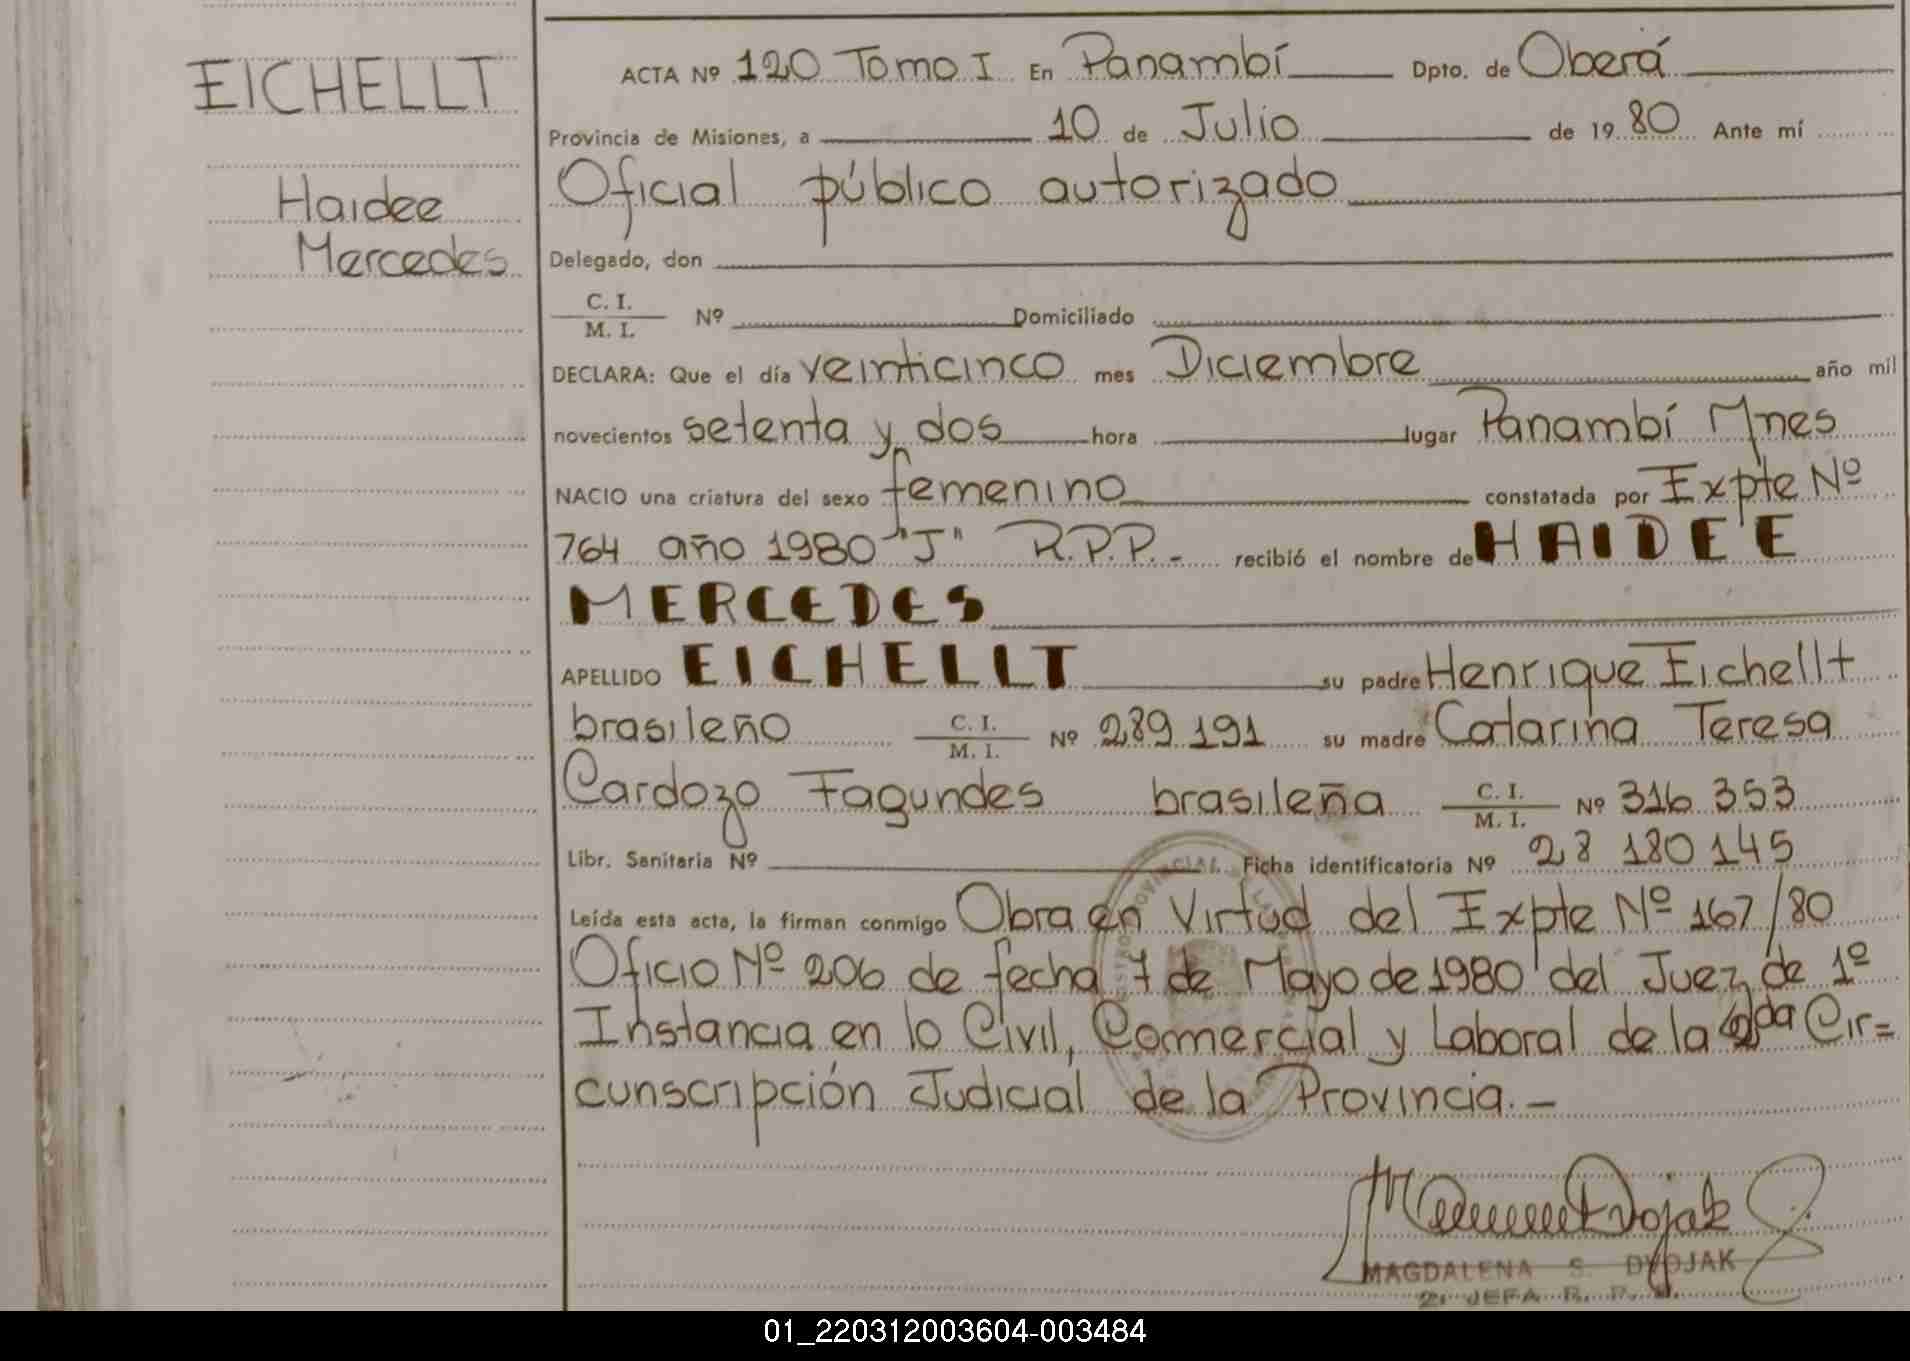 EICHELLT
Haidee
Mercedes
ACTA Nº 120 Tomo I En Panambí Dpto. de Oberá
Provincia de Misiones, a 10 de Julio de 1980 Ante mí
Oficial público autorizado
Delegado, don
C. I.
M. I. Nº Domiciliado
DECLARA: Que el día veinticinco mes Diciembre año mil
novecientos setenta y dos hora lugar Panambí Mnes
NACIO una criatura del sexo femenino constatada por Expte Nº
764 año 1980 "J" R.P.P.- recibió el nombre de HAIDEE
MERCEDES
APELLIDO EICHELLT su padre Henrique Eichellt
brasileño C. I. M. I. Nº 289.191 su madre Catarina Teresa
Cardozo Fagundes brasileña C. I. M. I. Nº 316.353
Libr. Sanitaria Nº Ficha identificatoria Nº 28 180 145
Leída esta acta, la firman conmigo Obra en Virtud del Expte Nº 167/80
Oficio Nº 206 de fecha 7 de Mayo de 1980 del Juez de 1º
Instancia en lo Civil, Comercial y Laboral de la 2da Cir=
cunscripción Judicial de la Provincia.-
MAGDALENA S. DVOJAK
2. JEFA R. P.
01_220312003604-003484